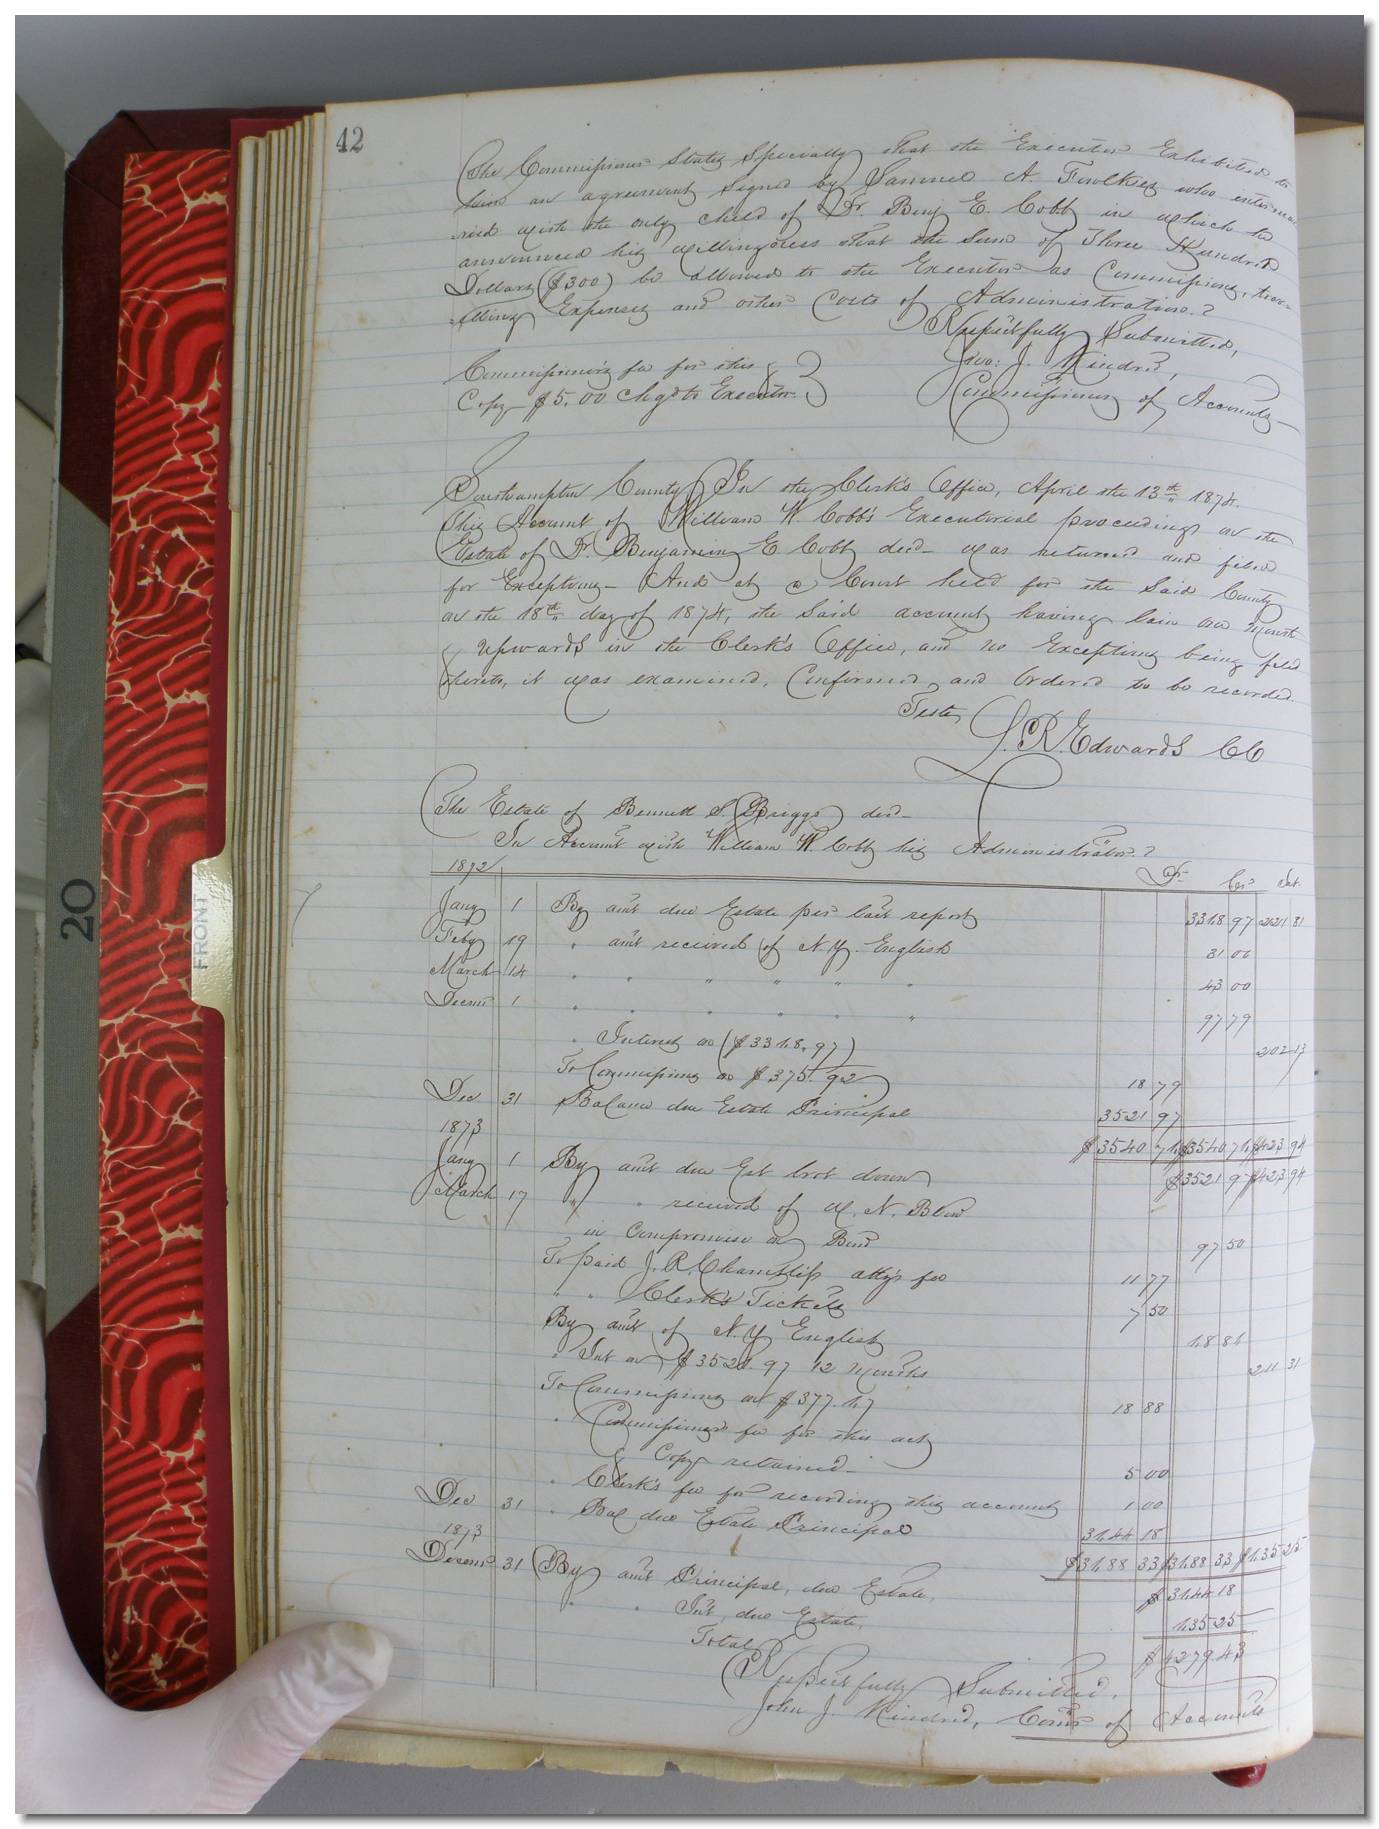 42
The Commissioner States Specially that the Executor Exhibited to
him an agreement signed by Samuel A. Faulkes who intermar
ried with the only child of Dr. Benj E. Cobb in which he
announced his willingness that the Sum of Three Hundred
Dollars ($300) be allowed to the Executor as Commissions, trav-
elling Expenses and other Costs of Administration.
Respectfully Submitted,
Jno: J. Kindred,
Commissioner of Accounts
Commissioner's fee for this &
Copy $5.00 chgd to Executor
Southampton County In the Clerk's Office, April the 13th 1874.
This Account of William W. Cobb's Executorial proceedings on the
Estate of Dr. Benjamin E Cobb decd was returned and filed
for Exceptions - And at a Court held for the Said County
on the 18th day of 1874, the Said account having lain one month
& upwards in the Clerk's Office, and no Exceptions being filed
thereto, it was examined, Confirmed and Ordered to be recorded.
Teste,
L. R. Edwards CC
The Estate of Bennett S. Briggs decd
In Account with William W. Cobb his Administrator
1872 Dr Cr Int.
Jany 1 By amt due Estate per last report 3318 97 221 81
Feby 19 " amt received of N. Y. English 31 00
March 14 " " " " " " 43 00
Decem 1 " " " " " " 97 79
" Interest on ($3318.97) 202 13
To Commissions on $375.92 18 79
Dec 31 Balance due Estate Principal 3521 97
$3540 76 $3540 76 $423 94
1873
Jany 1 By amt due Est brot down $3521 97 $423 94
March 17 " " received of W. N. Blow
in Compromise on Bond 97 50
To paid J. R. Chambliss atty's fee 11 77
" " Clerk's Tickets 7 50
By amt of N. Y English 68 86
" Int on $3521.97 12 months 211 31
To Commissions on $377.67 18 88
" Commissioners fee for this act
& Copy retained 5 00
" Clerk's fee for recording this account 1 00
Dec 31 " Bal due Estate Principal 3644 18
$3688 33 $3688 33 $635 25
1873
Decem 31 By amt Principal, due Estate, $3644 18
" " Int, due Estate, 635 25
Total $4279.43
Respectfully Submitted,
John J. Kindred, Comr of Accounts
20
FRONT